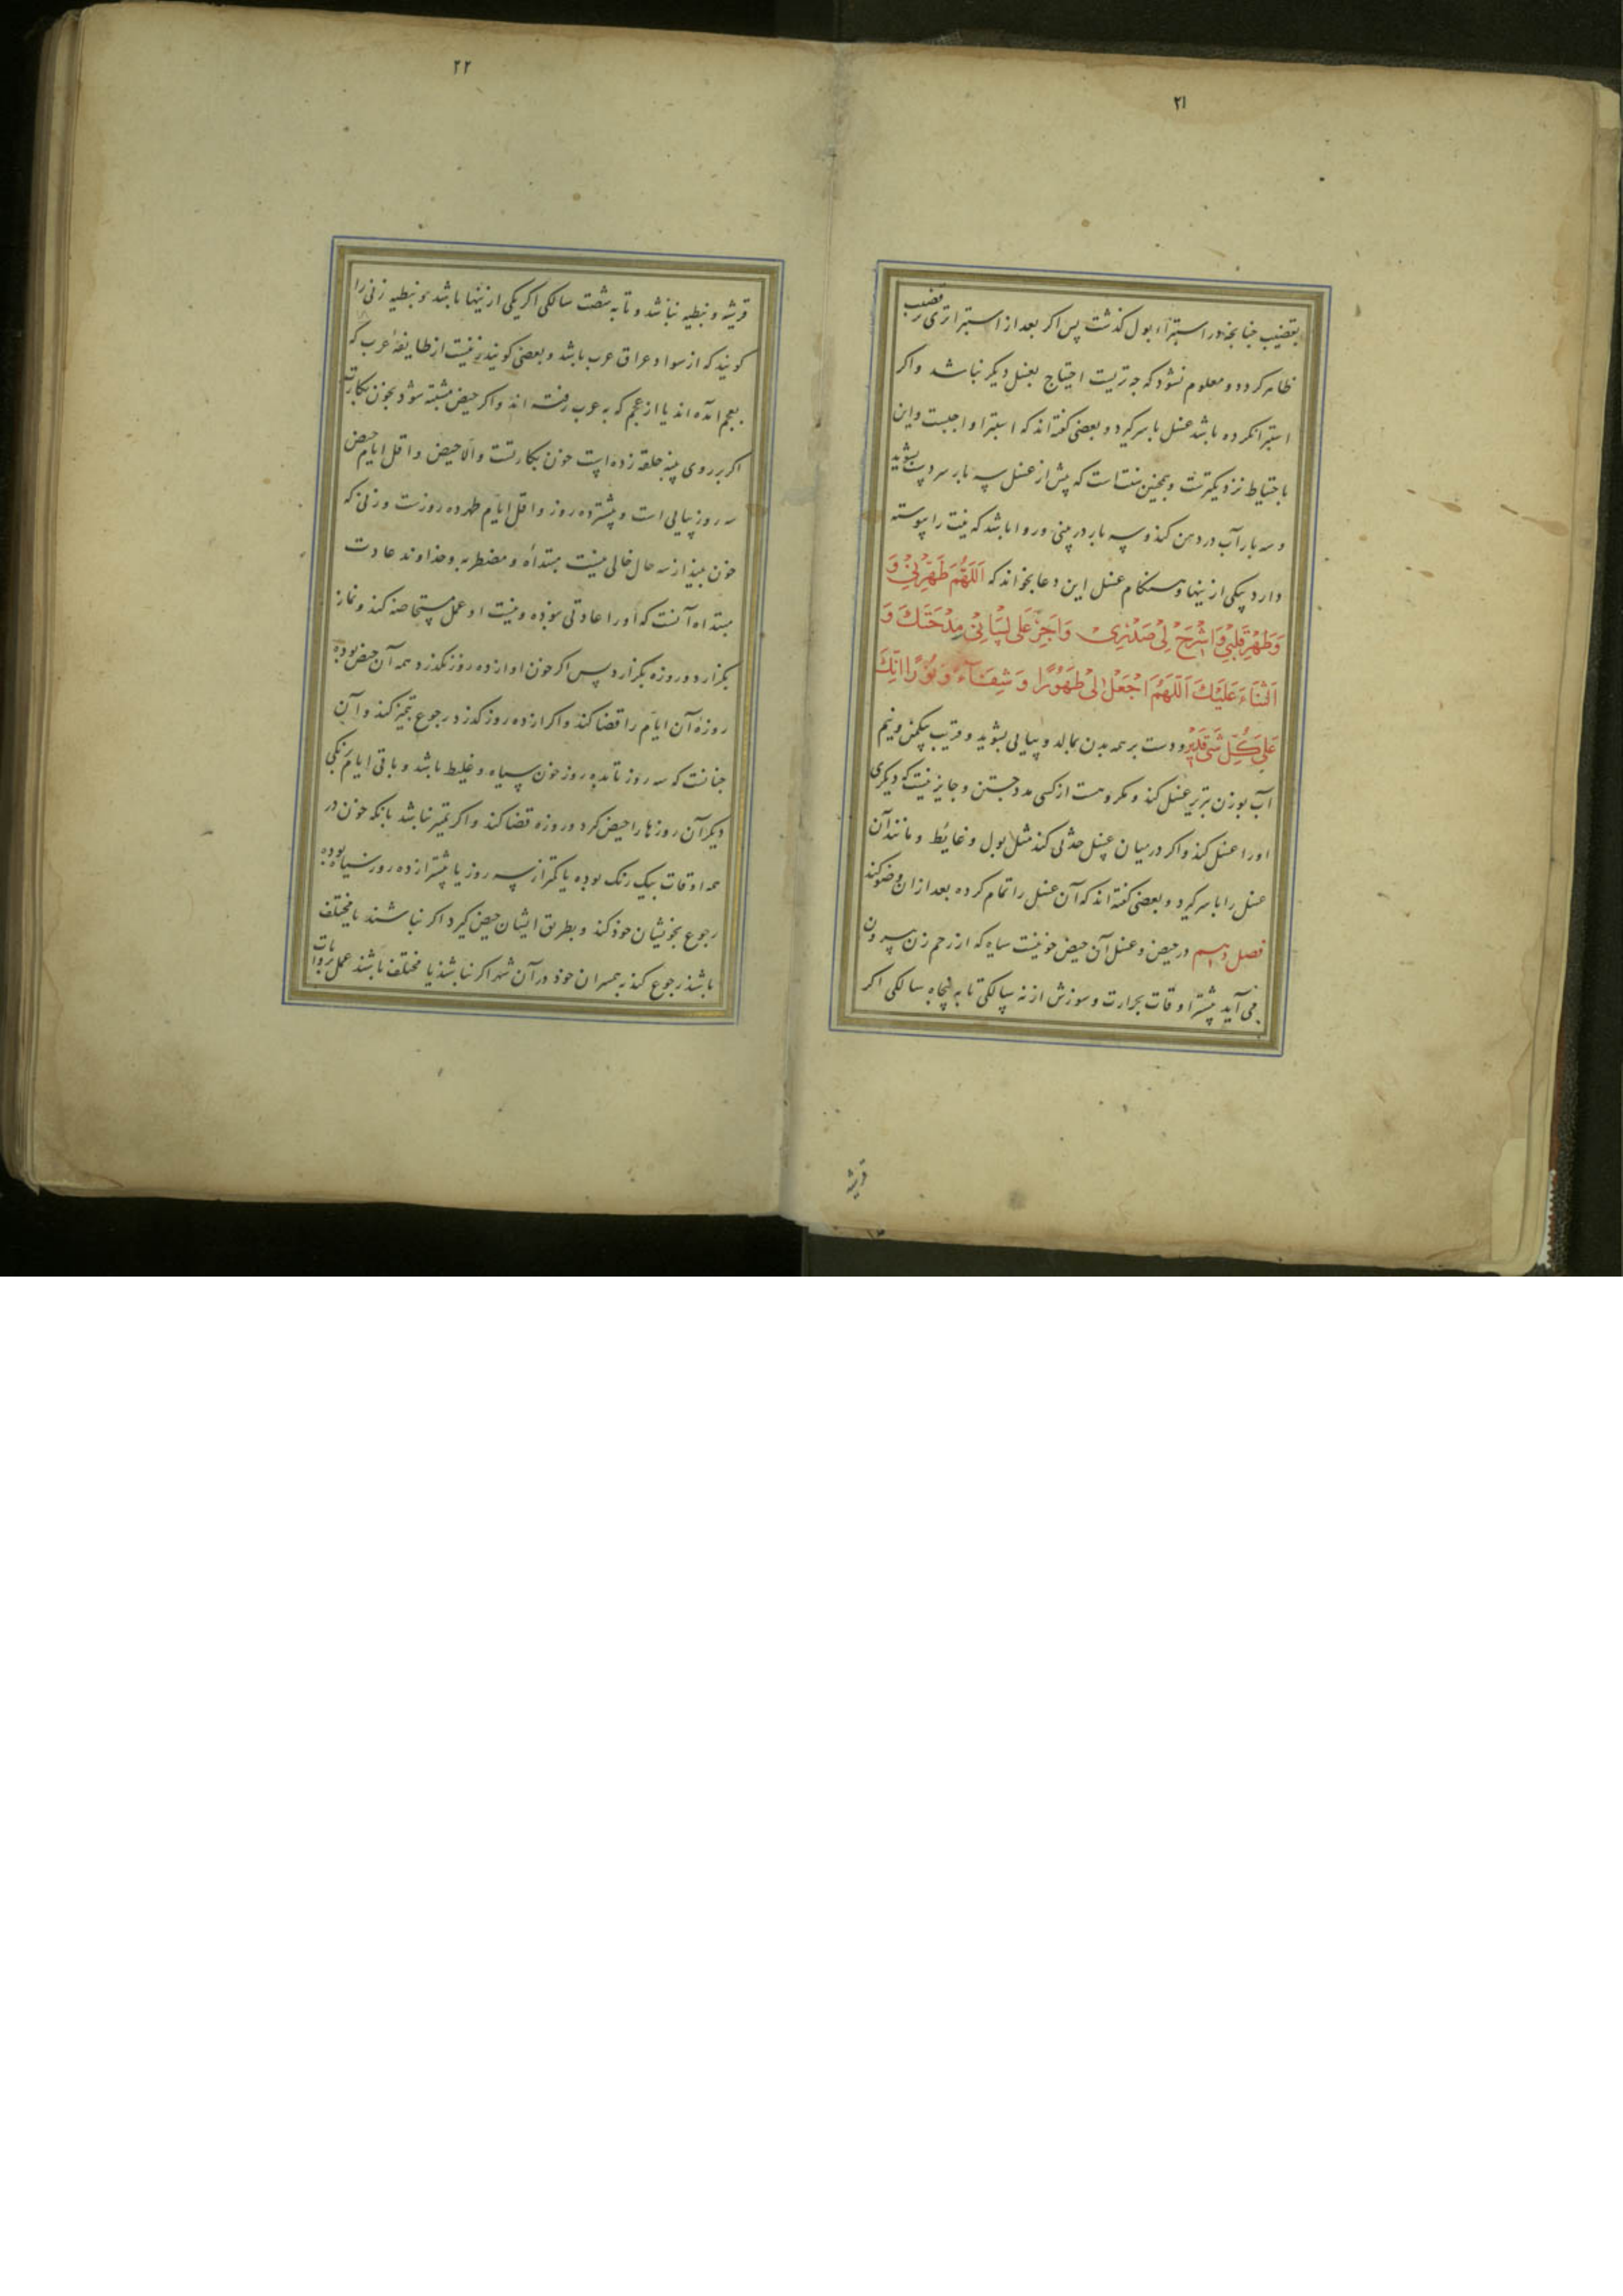 ۲۱
بقضیب چنانچه در استبراء بول گذشت پس اگر بعد از استبرا تری بر قضیب
ظاهر گردد و معلوم نشود که چه تریست احتیاج بغسل دیگر نباشد و اگر
استبرا نکرده باشد غسل باسر گیرد و بعضی گفته‌اند که استبرا واجبست و این
باحتیاط نزدیکترست و همچنین سنت است که پیش از غسل سه بار سر دست بشوید
و سه بار آب در دهن کند و سه بار در بینی و روا باشد که نیت را پیوسته
دارد بیکی از ینها و هنگام غسل این دعا بخواند که اَللّهُمَّ طَهِّرْنِیْ وَ
وَطَهِّرْ قَلْبِیْ وَاشْرَحْ لِیْ صَدْرِیْ وَاَجْرِ عَلی لِسَانِیْ مِدْحَتَكَ وَ
اَلثَّنَاءَ عَلَیْكَ اَللّهُمَّ اجْعَلْ لِیْ طَهُوْرًا وَ شِفَآءً وَ نُوْرًا اِنَّكَ
عَلی کُلِّ شَیْ قَدِیْرٌ و دست بر همه بدن بمالد و پیاپی بشوید و قریب بیکمن و نیم
آب بوزن تبریز غسل کند و مکروهست از کسی مدد جستن و جایز نیست که دیگری
اورا غسل کند و اگر در میان غسل حدثی کند مثل بول و غائط و مانند آن
غسل را باسر گیرد و بعضی گفته‌اند که آن غسل را تمام کرده بعد از ان وضو کند
فصل دهم در حیض و غسل آن حیض خونیست سیاه که از رحم زن بیرون
می آید بیشتر اوقات بحرارت و سوزش از نه سالگی تا به پنجاه سالگی اگر
قریشه
۲۲
قریشه و نبطیه نباشد و تا به شصت سالگی اگر یکی از ینها باشد و نبطیه زنی را
گویند که از سواد عراق عرب باشد و بعضی گویند زنیست از طایفهٔ عرب که
بعجم آمده اند یا از عجم که به عرب رفته اند و اگر حیض مشتبه شود بخون بکارت
اگر بر روی پنبه حلقه زده است خون بکارتست والّا حیض و اقل ایام حیض
سه روز پیاپی است و بیشتر ده روز و اقل ایّام طهر ده روزست و زنی که
خون بیند از سه حال خالی نیست مبتداه و مضطربه و خداوند عادت
مبتداه آنست که اورا عادتی نبوده و نیست او عمل مستحاضه کند و نماز
بگزارد و روزه بگزارد پس اگر خون او از ده روز نگذرد همه آن حیض بوده
روزهٔ آن ایام را قضا کند و اگر از ده روز گذرد رجوع بتمیز کند و آن
چنانست که سه روز تا بده روز خون سیاه و غلیظ باشد و باقی ایام برنگی
دیگر آن روزها را حیض گیرد و روزه قضا کند و اگر تمیز نباشد بانکه خون در
همه اوقات بیک رنگ بوده یا کمتر از سه روز یا بیشتر از ده روز سیاه بوده
رجوع بخویشان خود کند و بطریق ایشان حیض گیرد اگر نباشند یا مختلف
باشند رجوع کند به همسران خود در آن شهر اگر نباشند یا مختلف باشند عمل بروایات